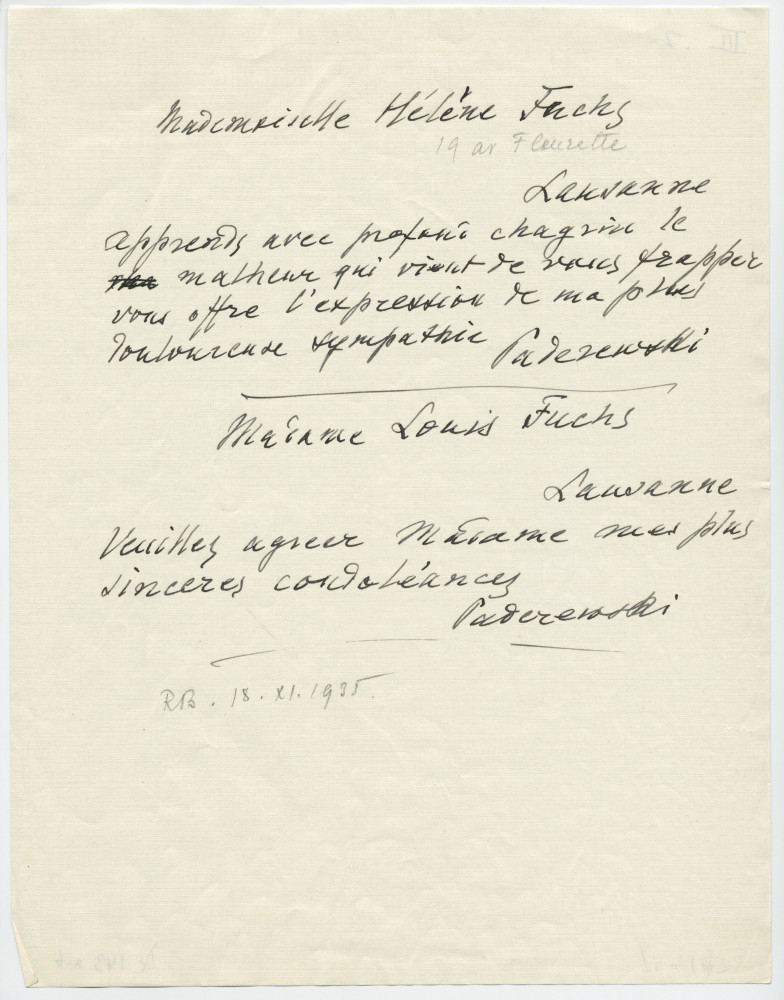 Mademoiselle Hélène Fuchs
19 av Fleurette
Lausanne
apprends avec profond chagrin le
malheur qui vient de vous frapper
vous offre l'expression de ma plus
douloureuse sympathie Paderewski
Madame Louis Fuchs
Lausanne
Veuillez agreer Madame mes plus
sinceres condoléances
Paderewski
RB. 18. XI. 1935.